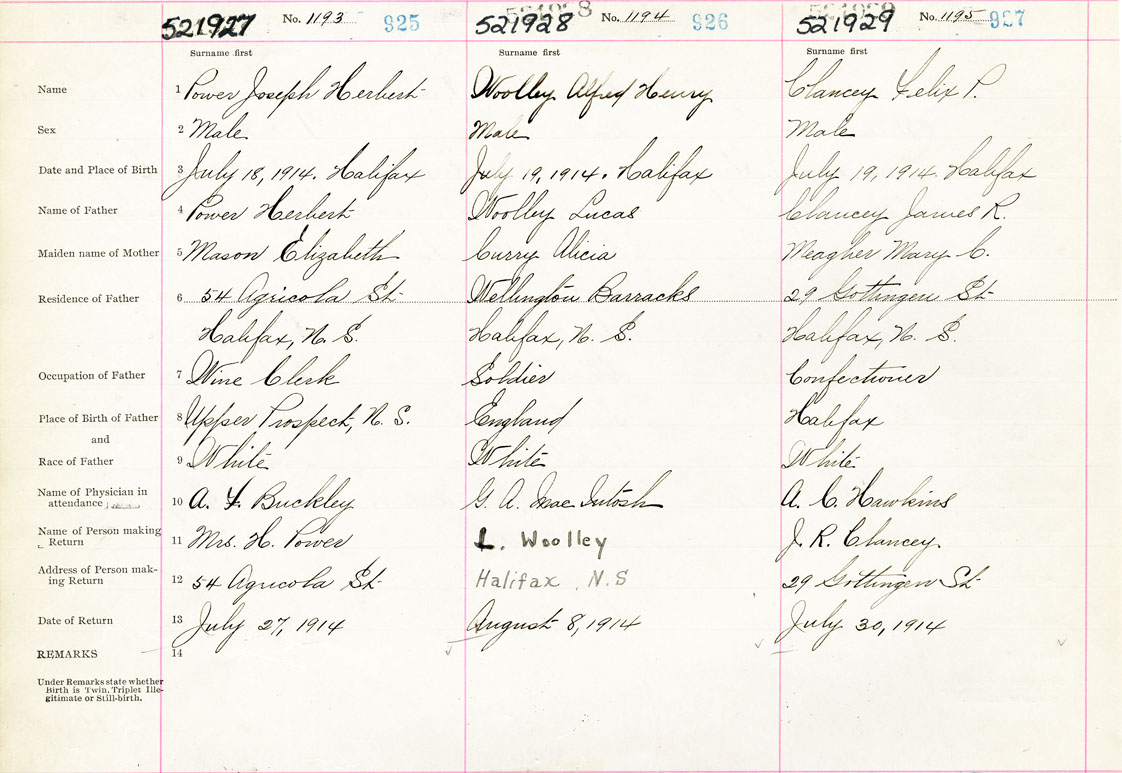 521927 No. 1193 925 521928 No. 1194 926 521929 No. 1195 927
Surname first Surname first Surname first
Name 1 Power Joseph Herbert Woolley Alfred Henry Clancey Felix P.
Sex 2 Male Male Male
Date and Place of Birth 3 July 18, 1914. Halifax July 19, 1914. Halifax July 19, 1914. Halifax
Name of Father 4 Power Herbert Woolley Lucas Clancey James R.
Maiden name of Mother 5 Mason Elizabeth Curry Alicia Meagher Mary C.
Residence of Father 6 54 Agricola St. Wellington Barracks 29 Gottingen St.
Halifax, N. S. Halifax, N. S. Halifax, N. S.
Occupation of Father 7 Wine Clerk Soldier Confectioner
Place of Birth of Father 8 Upper Prospect, N. S. England Halifax
and
Race of Father 9 White White White
Name of Physician in
attendance 10 A. F. Buckley G. A. MacIntosh A. C. Hawkins
Name of Person making
Return 11 Mrs. H. Power L. Woolley J. R. Clancey
Address of Person mak-
ing Return 12 54 Agricola St. Halifax N.S 29 Gottingen St.
Date of Return 13 July 27, 1914 August 8, 1914 July 30, 1914
REMARKS 14
Under Remarks state whether
Birth is Twin, Triplet Ille-
gitimate or Still-birth.